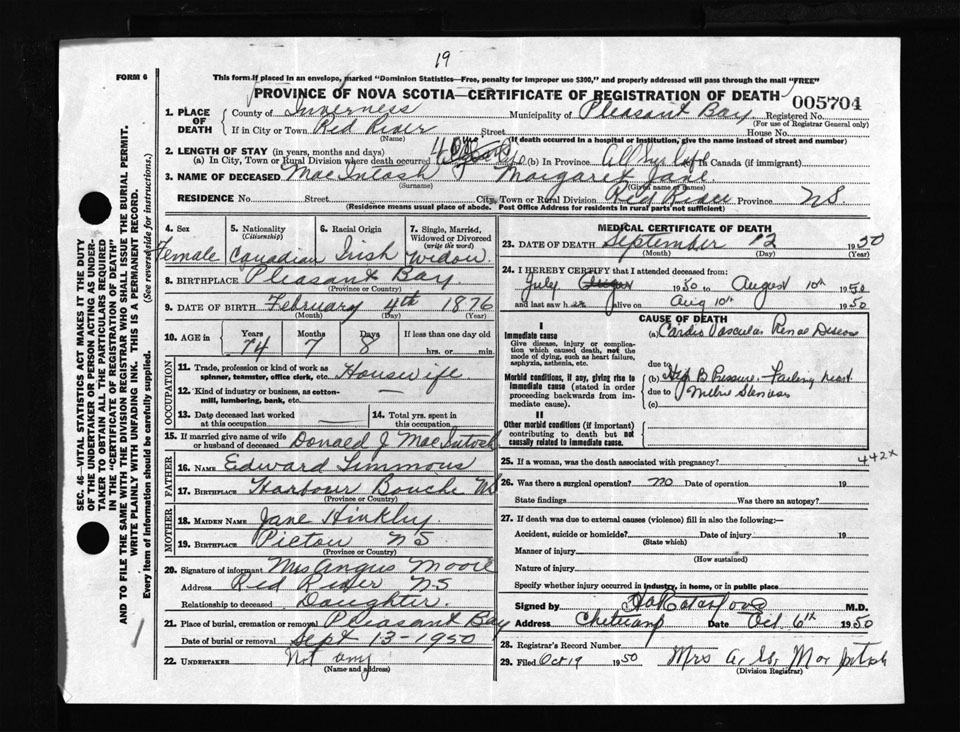 19
FORM 6
This form if placed in an envelope, marked "Dominion Statistics—Free, penalty for improper use $300," and properly addressed will pass through the mail "FREE"
PROVINCE OF NOVA SCOTIA—CERTIFICATE OF REGISTRATION OF DEATH
005704
1. PLACE OF DEATH
County of Inverness Municipality of Pleasant Bay Registered No.
(For use of Registrar General only)
If in City or Town Red River Street House No.
(Name) (If death occurred in a hospital or institution, give its name instead of street and number)
2. LENGTH OF STAY (in years, months and days)
(a) In City, Town or Rural Division where death occurred 40 yrs (b) In Province All her life (c) In Canada (if immigrant)
3. NAME OF DECEASED MacIntosh Margaret Jane
(Surname) (Given name or names)
RESIDENCE No. Street City, Town or Rural Division Red River Province N.S.
(Residence means usual place of abode. Post Office Address for residents in rural parts not sufficient)
4. Sex 5. Nationality (Citizenship) 6. Racial Origin 7. Single, Married, Widowed or Divorced (write the word)
Female Canadian Irish Widow
8. BIRTHPLACE Pleasant Bay
(Province or Country)
9. DATE OF BIRTH February 4th 1876
(Month) (Day) (Year)
10. AGE in Years Months Days If less than one day old
74 7 8 hrs. or min.
OCCUPATION
11. Trade, profession or kind of work as spinner, teamster, office clerk, etc. Housewife
12. Kind of industry or business, as cotton-mill, lumbering, bank, etc.
13. Date deceased last worked at this occupation 14. Total yrs. spent in this occupation
15. If married give name of wife or husband of deceased Donald J MacIntosh
FATHER
16. NAME Edward Timmons
17. BIRTHPLACE Harbour Bouche NS
(Province or Country)
MOTHER
18. MAIDEN NAME Jane Hinkley
19. BIRTHPLACE Pictou NS
(Province or Country)
20. Signature of informant Mrs Angus Moore
Address Red River NS
Relationship to deceased Daughter
21. Place of burial, cremation or removal Pleasant Bay
Date of burial or removal Sept 13-1950
22. UNDERTAKER Not any
(Name and address)
MEDICAL CERTIFICATE OF DEATH
23. DATE OF DEATH September 12 1950
(Month) (Day) (Year)
24. I HEREBY CERTIFY that I attended deceased from:
July 1950 to August 10th 1950
and last saw her alive on Aug 10th 1950
CAUSE OF DEATH
I
Immediate cause
Give disease, injury or complication which caused death, not the mode of dying, such as heart failure, asphyxia, asthenia, etc.
(a) Cardio Vascular Renal Disease
due to
Morbid conditions, if any, giving rise to immediate cause (stated in order proceeding backwards from immediate cause).
(b) High B Pressure - Failing heart
due to
(c)
II
Other morbid conditions (if important) contributing to death but not causally related to immediate cause.
25. If a woman, was the death associated with pregnancy? 442x
26. Was there a surgical operation? no Date of operation 19
State findings Was there an autopsy?
27. If death was due to external causes (violence) fill in also the following:—
Accident, suicide or homicide? Date of injury 19
(State which)
Manner of injury
(How sustained)
Nature of injury
Specify whether injury occurred in industry, in home, or in public place
Signed by M.D.
Address Cheticamp Date Oct 6th 1950
28. Registrar's Record Number
29. Filed Oct 19 1950 Mrs A.
(Division Registrar)
SEC. 46—VITAL STATISTICS ACT MAKES IT THE DUTY
OF THE UNDERTAKER OR PERSON ACTING AS UNDER-
TAKER TO OBTAIN ALL THE PARTICULARS REQUIRED
IN THE "CERTIFICATE OF REGISTRATION OF DEATH"
AND TO FILE THE SAME WITH THE DIVISION REGISTRAR WHO SHALL ISSUE THE BURIAL PERMIT.
WRITE PLAINLY WITH UNFADING INK. THIS IS A PERMANENT RECORD.
Every item of information should be carefully supplied. (See reversed side for instructions.)